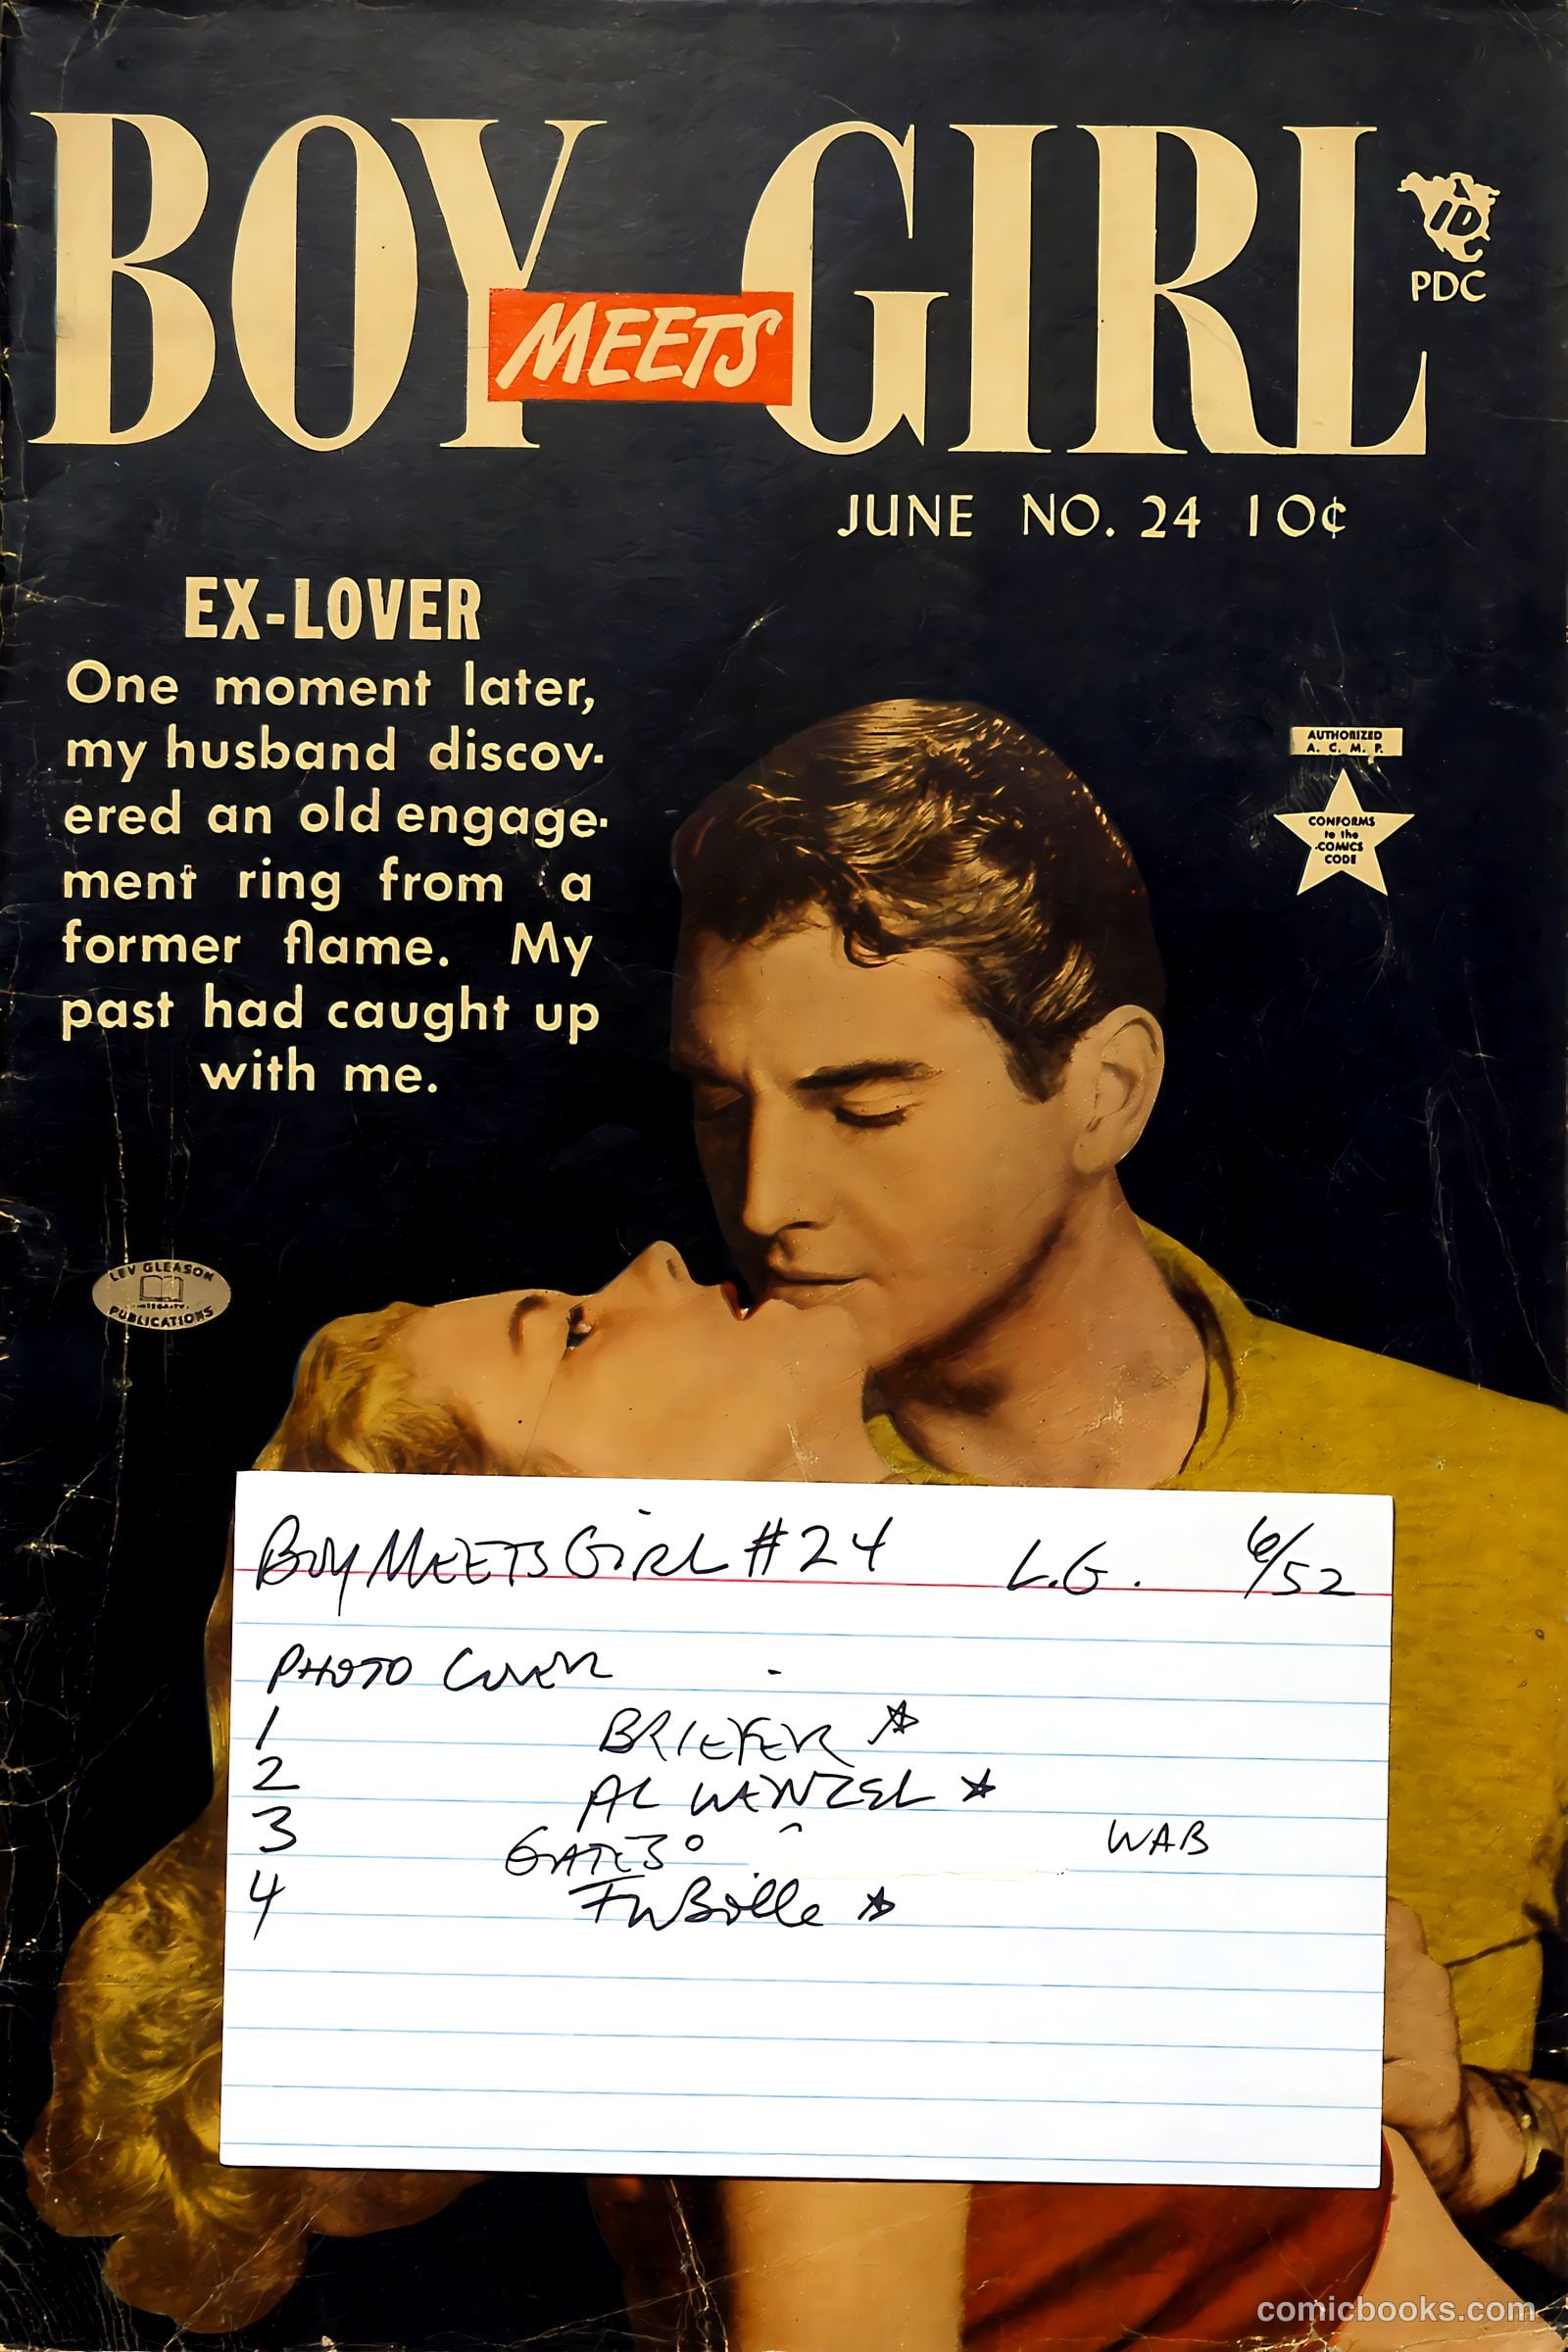 BOY MEETS GIRL
PDC
JUNE NO. 24 10¢
EX-LOVER
One moment later,
my husband discov-
ered an old engage-
ment ring from a
former flame. My
past had caught up
with me.
AUTHORIZED
A. C. M. P.
CONFORMS
to the
COMICS
CODE
LEV GLEASON
PUBLICATIONS
BOY MEETS GIRL #24 L.G. 6/52
PHOTO COVER -
1 BRIEFER ☆
2 AL WENZEL ☆
3 GATES° WAB
4 FWBille ☆
comicbooks.com